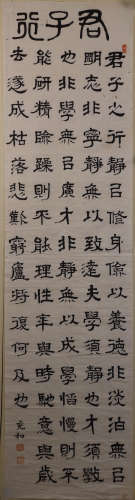 君子行
君子之行靜以修身儉以養德非淡泊無以
明志非寧靜無以致遠夫學須靜也才須學
也非學無以廣才非靜無以成學慆慢則不
能研精險躁則不能理性年與時馳意與歲
去遂成枯落悲歎窮廬將復何及也
充和